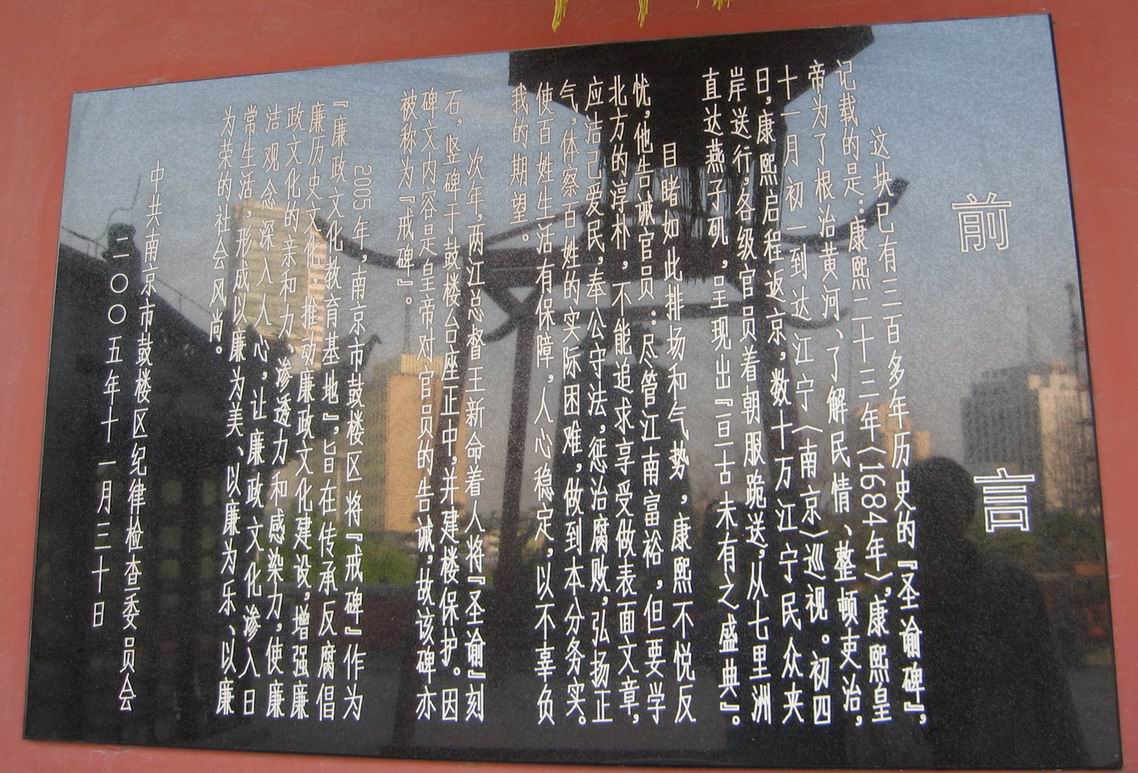 前言
这块已有三百多年历史的『圣谕碑』，
记载的是：康熙二十三年（1684年），康熙皇
帝为了根治黄河、了解民情、整顿吏治，
十一月初一到达江宁（南京）巡视。初四
日，康熙启程返京，数十万江宁民众夹
岸送行，各级官员着朝服跪送，从七里洲
直达燕子矶，呈现出『亘古未有之盛典』。
目睹如此排场和气势，康熙不悦反
忧，他告诫官员：尽管江南富裕，但要学
北方的淳朴，不能追求享受做表面文章，
应洁己爱民，奉公守法，惩治腐败，弘扬正
气，体察百姓的实际困难，做到本分务实。
使百姓生活有保障，人心稳定，以不辜负
我的期望。
次年，两江总督王新命着人将『圣谕』刻
石，竖碑于鼓楼台座正中，并建楼保护。因
碑文内容是皇帝对官员的告诫，故该碑亦
被称为『戒碑』。
2005年，南京市鼓楼区将『戒碑』作为
『廉政文化教育基地』，旨在传承反腐倡
廉历史文化，推动廉政文化建设，增强廉
政文化的亲和力、渗透力和感染力，使廉
洁观念深入人心，让廉政文化渗入日
常生活，形成以廉为美、以廉为乐、以廉
为荣的社会风尚。
中共南京市鼓楼区纪律检查委员会
二〇〇五年十一月三十日